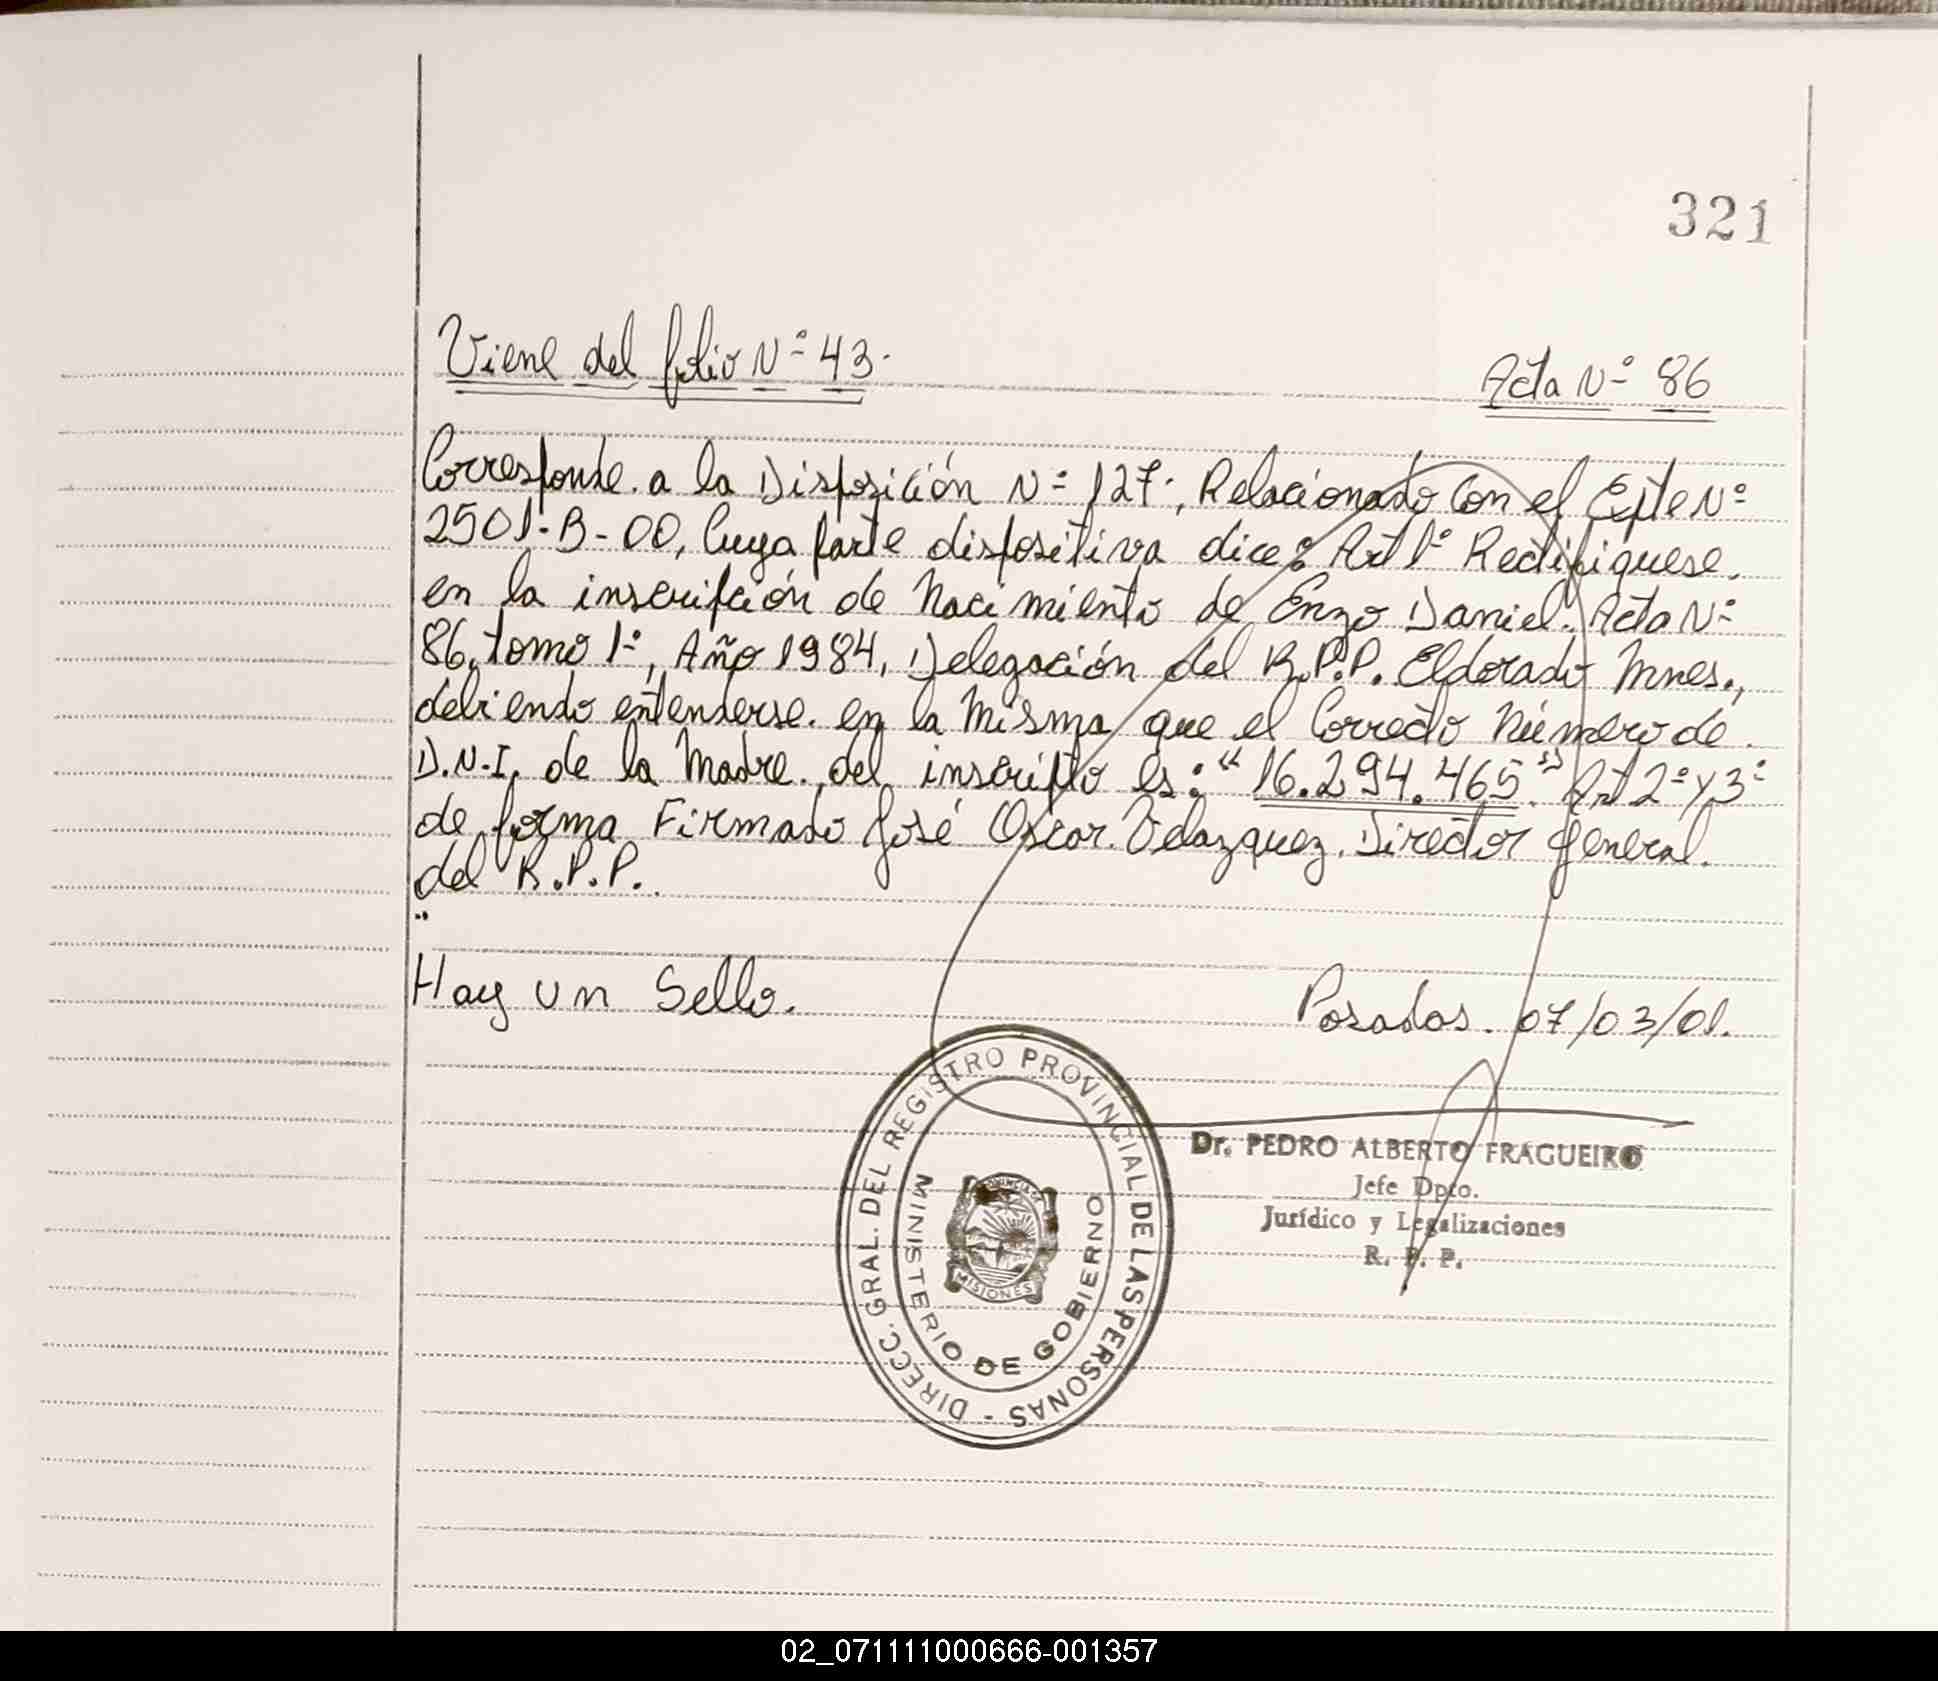 321
Viene del folio Nº 43.
Acta Nº 86
Corresponde a la Disposición Nº 127, Relacionado con el Expte Nº
2501-B-00, Cuya parte dispositiva dice: Art 1º Rectifiquese
en la inscripción de Nacimiento de Enzo Daniel. Acta Nº
86, tomo 1º, Año 1984, Delegación del R.P.P. Eldorado Mnes.,
debiendo entenderse en la Misma que el Correcto Número de
D.N.I. de la Madre del inscripto es: "16.294.465" Art 2º y 3º
de forma Firmado José Oscar Velazquez. Director General.
del R.P.P.
Hay un Sello.
Posadas. 07/03/01.
DIRECC. GRAL. DEL REGISTRO PROVINCIAL DE LAS PERSONAS -
MINISTERIO DE GOBIERNO
PROVINCIA DE
MISIONES
Dr. PEDRO ALBERTO FRAGUEIRO
Jefe Dpto.
Jurídico y Legalizaciones
R. P. P.
02_071111000666-001357